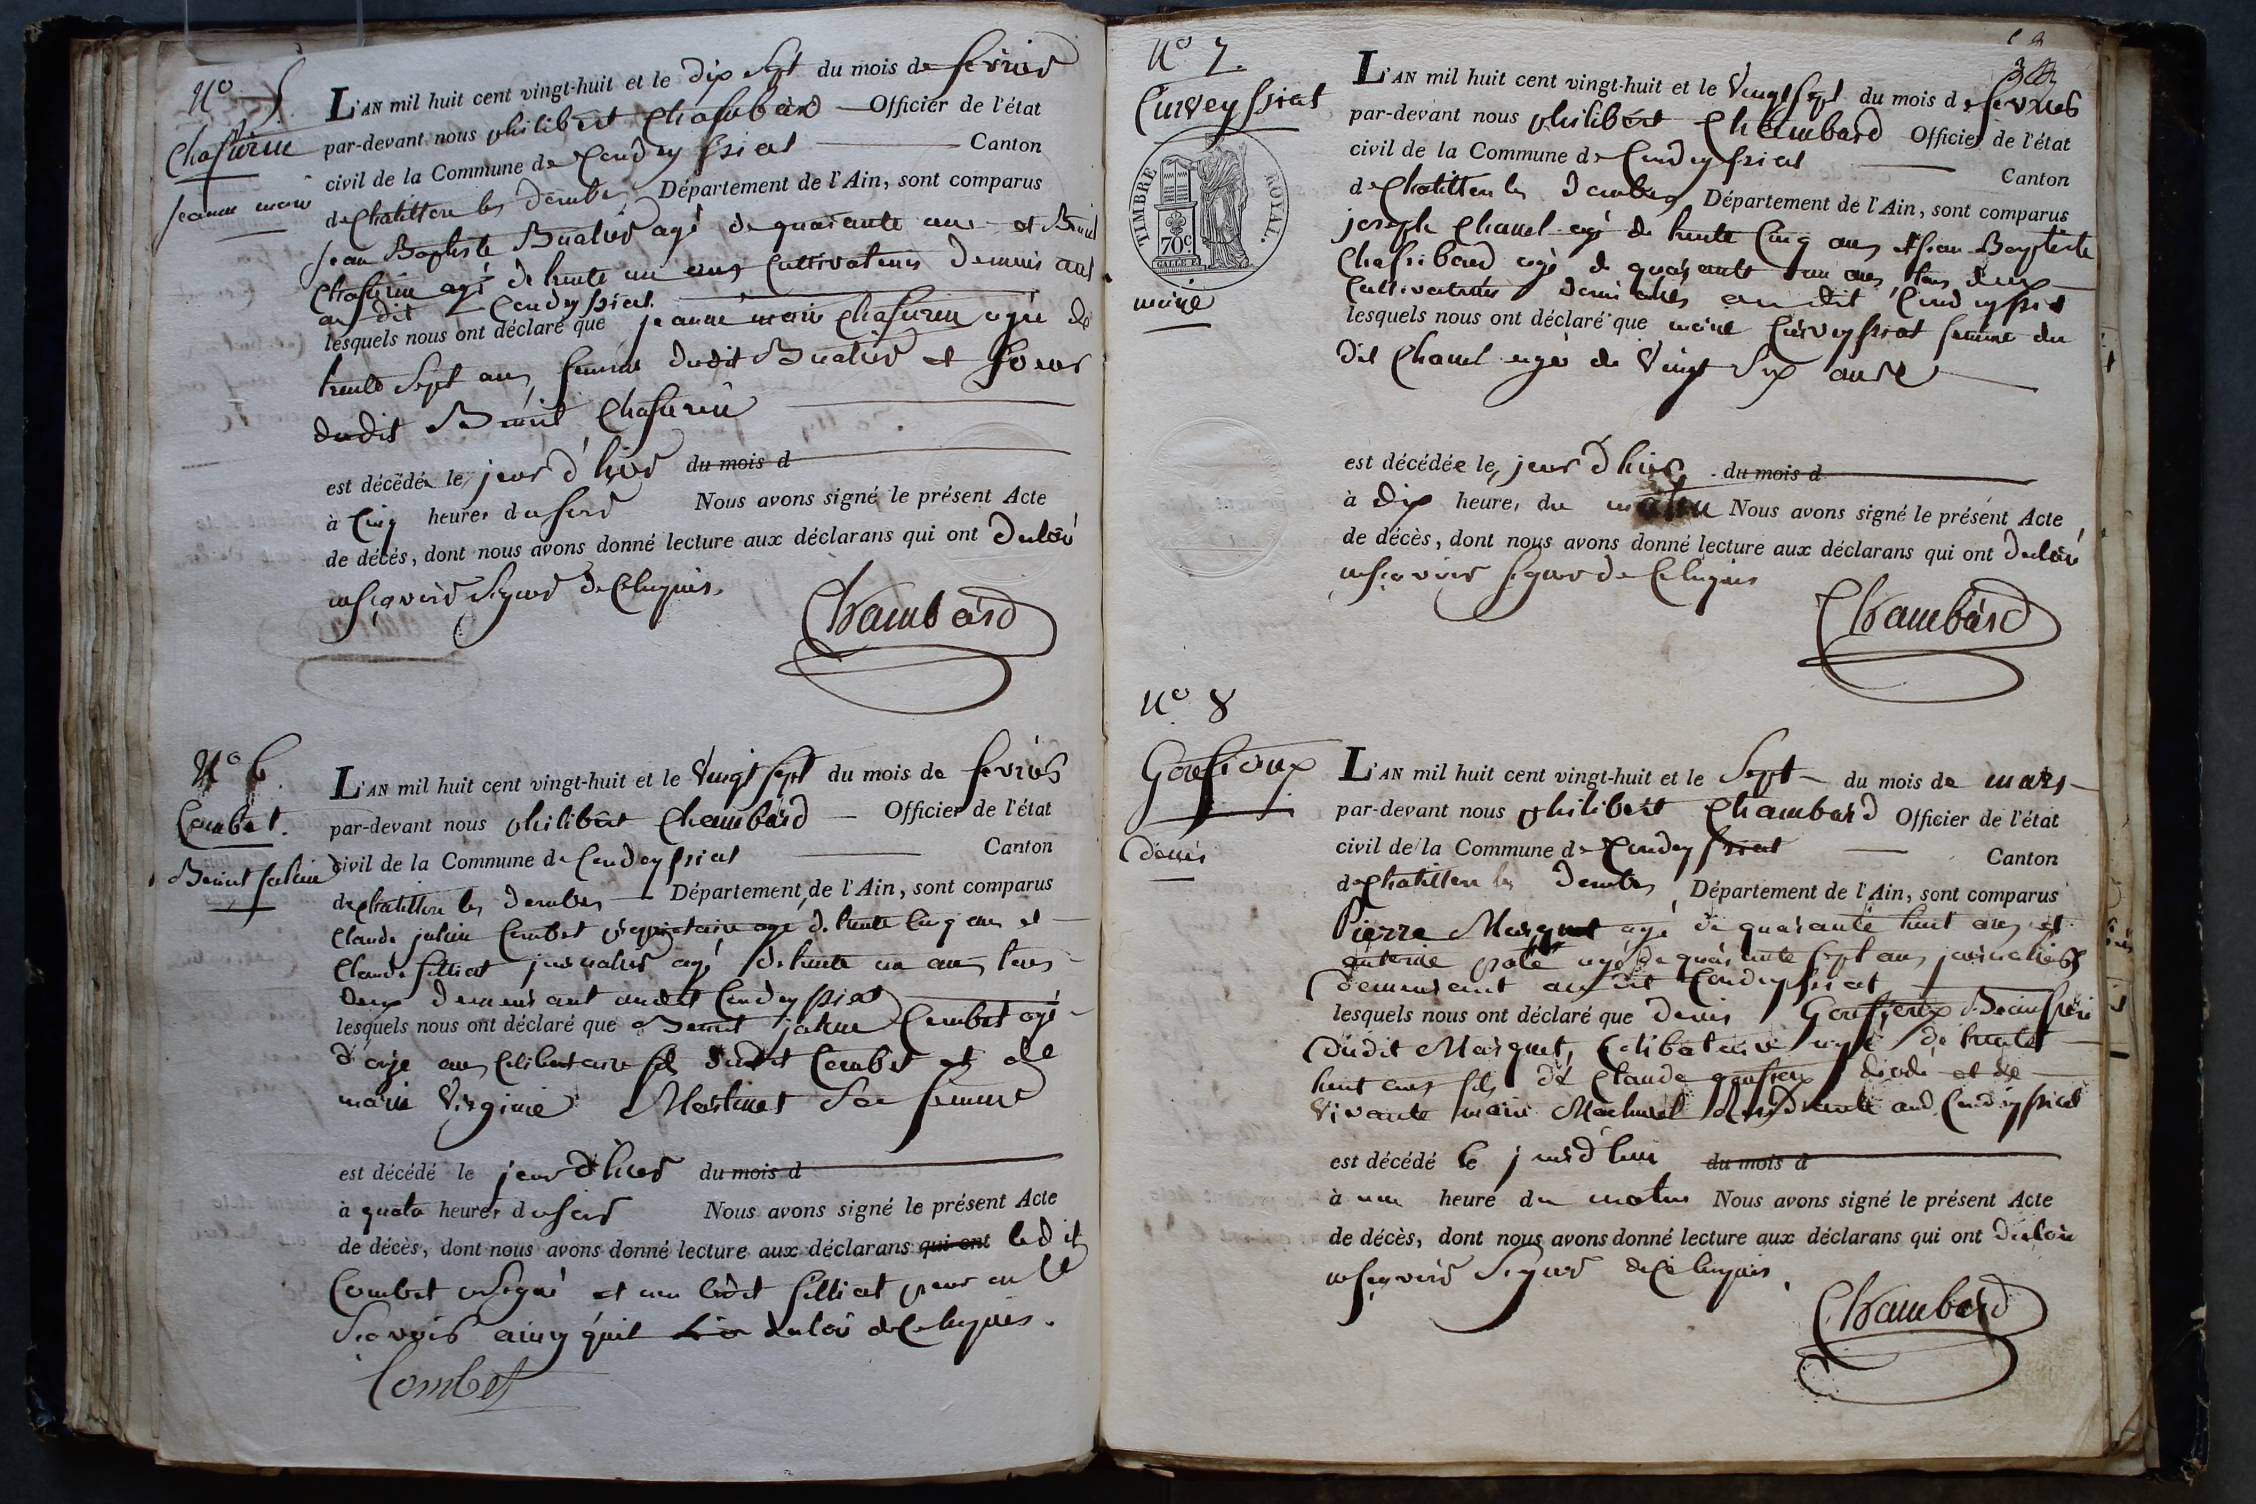 N° 5
Chassurin
jeanne marie
L'AN mil huit cent vingt-huit et le dix sept du mois de fevrier
par-devant nous philibert Chambard Officier de l'état
civil de la Commune de Condeyssiat Canton
de Chatillon les dombes Département de l'Ain, sont comparus
jean Baptiste Buatier agé de quarante ans et Benoit
agé de trente un ans Cultivateurs
au dit Condeyssiat.
lesquels nous ont déclaré que jeanne marie agée de
trente sept ans, femme dudit Buatier et soeur
dudit Benoit
est décédée le jour d'hier du mois d
à Cinq heures du soir Nous avons signé le présent Acte
de décès, dont nous avons donné lecture aux déclarans qui ont declaré
ne scavoir signer de ce enquis.
Chambard
N° 6
Combet.
Benoit julien
L'AN mil huit cent vingt-huit et le vingt sept du mois de fevrier
par-devant nous philibert Chambard Officier de l'état
civil de la Commune de Condeyssiat Canton
de chatillon les dombes Département de l'Ain, sont comparus
Claude julien Combet proprietaire agé de trente cinq ans et
Claude filliat journalier agé de trente un ans tous
deux demeurant audit Condeyssiat
lesquels nous ont déclaré que Benoit julien Combet agé
d'onze ans Celibataire fils dudit Combet et de
marie Virginie Martinet Sa femme
est décédé le jour d'hier du mois d
à quatre heures du soir Nous avons signé le présent Acte
de décès, dont nous avons donné lecture aux déclarans qui ont ledit
Combet a signé et non ledit filliat pour ne le
scavoir ainsy qu'il a declaré de ce enquis.
Combet
N° 7.
Curveyssiat
TIMBRE ROYAL.
70c
marie
L'AN mil huit cent vingt-huit et le vingt sept du mois de fevrier
par-devant nous philibert Chambard Officier de l'état
civil de la Commune de Condeyssiat Canton
de Chatillon les dombes Département de l'Ain, sont comparus
joseph Chanel agé de trente Cinq ans et jean Baptiste
agé de quarante un ans, tous deux
Cultivateurs au dit Condeyssiat
lesquels nous ont déclaré que marie Curveyssiat femme du
dit Chanel agée de vingt six ans
est décédée le jour d'hier du mois d
à dix heures du matin Nous avons signé le présent Acte
de décès, dont nous avons donné lecture aux déclarans qui ont declaré
ne scavoir signer de ce enquis
Chambard
N° 8
Goussioux
denis
L'AN mil huit cent vingt-huit et le Sept du mois de mars
par-devant nous philibert Chambard Officier de l'état
civil de la Commune de Condeyssiat Canton
de Chatillon les dombes Département de l'Ain, sont comparus
Pierre Marguet agé de quarante huit ans et
antoine agé de quarante sept ans journaliers
demeurant au dit Condeyssiat
lesquels nous ont déclaré que denis Beaufrere
dudit Marguet, Celibataire agé de trente
huit ans fils de Claude et de
vivante marie aud. Condeyssiat
est décédé le jourd'hui du mois d
à une heure du matin Nous avons signé le présent Acte
de décès, dont nous avons donné lecture aux déclarans qui ont declaré
ne scavoir signer de ce enquis.
Chambard